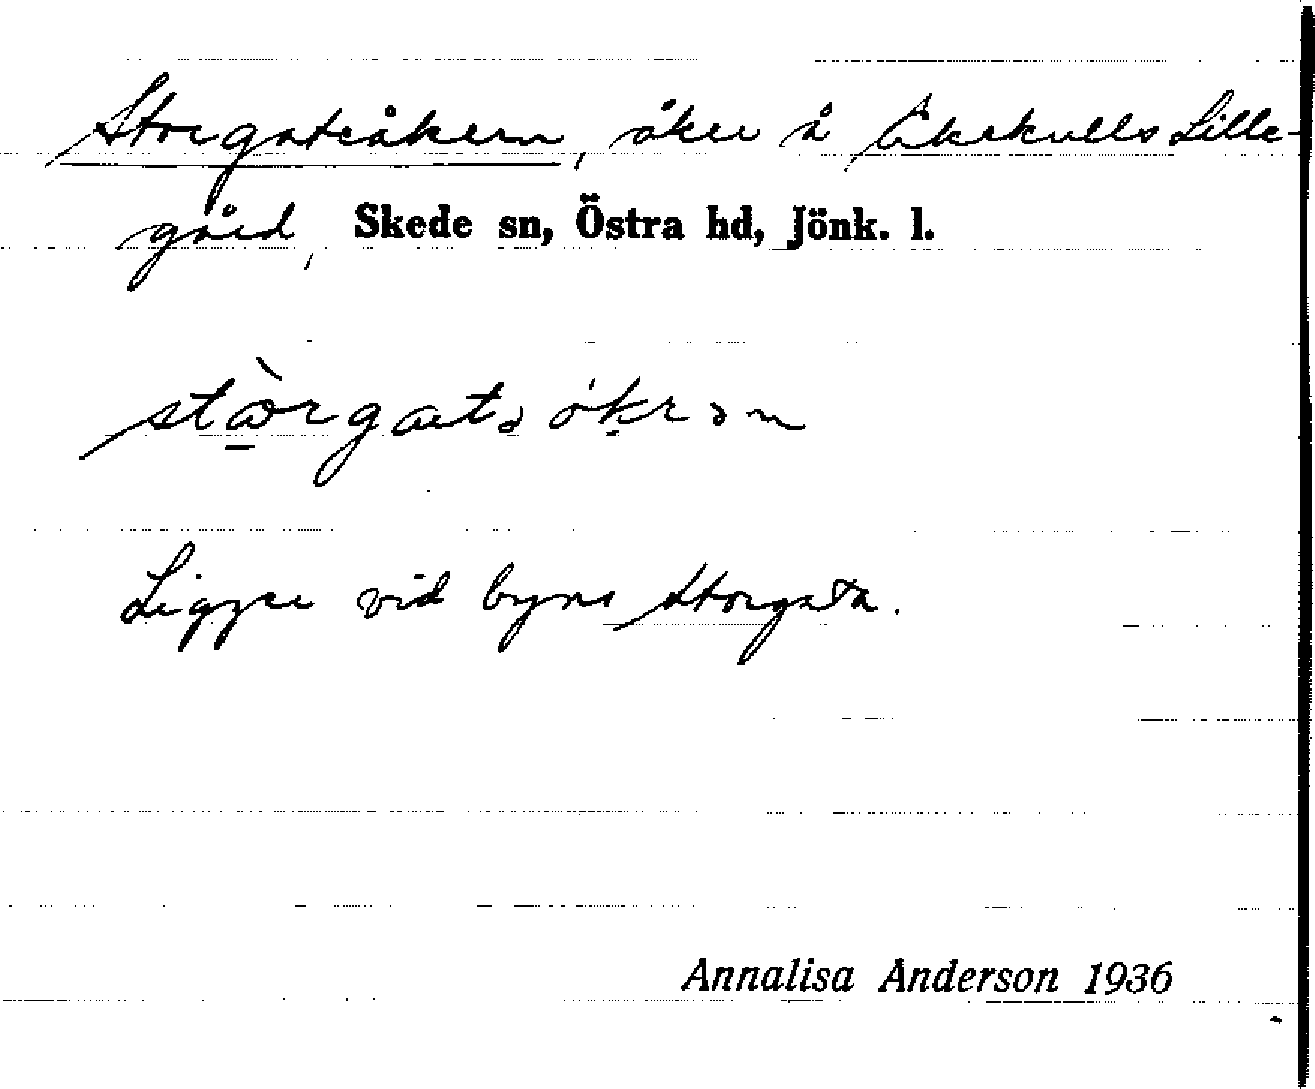 Storgateåkern, åker å Äkekulls Lille-
gård, Skede sn, Östra hd, Jönk. l.
stòrgatəåkrən
Ligger vid byns Storgata.
Annalisa Anderson 1936